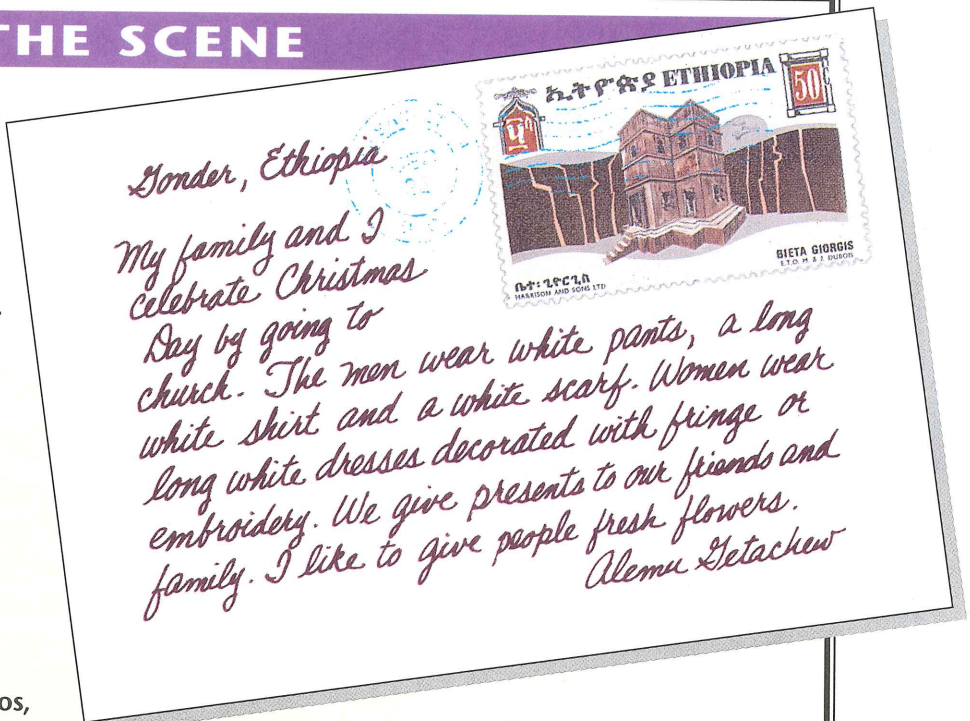 THE SCENE
ኢትዮጵያ ETHIOPIA
50
BIETA GIORGIS
E.T.O. M. & J. DUBOIS
ቤተ፡ጊዮርጊስ
HARRISON AND SONS LTD
Gonder, Ethiopia
My family and I
celebrate Christmas
Day by going to
church. The men wear white pants, a long
white shirt and a white scarf. Women wear
long white dresses decorated with fringe or
embroidery. We give presents to our friends and
family. I like to give people fresh flowers.
Alemu Getachew
os,